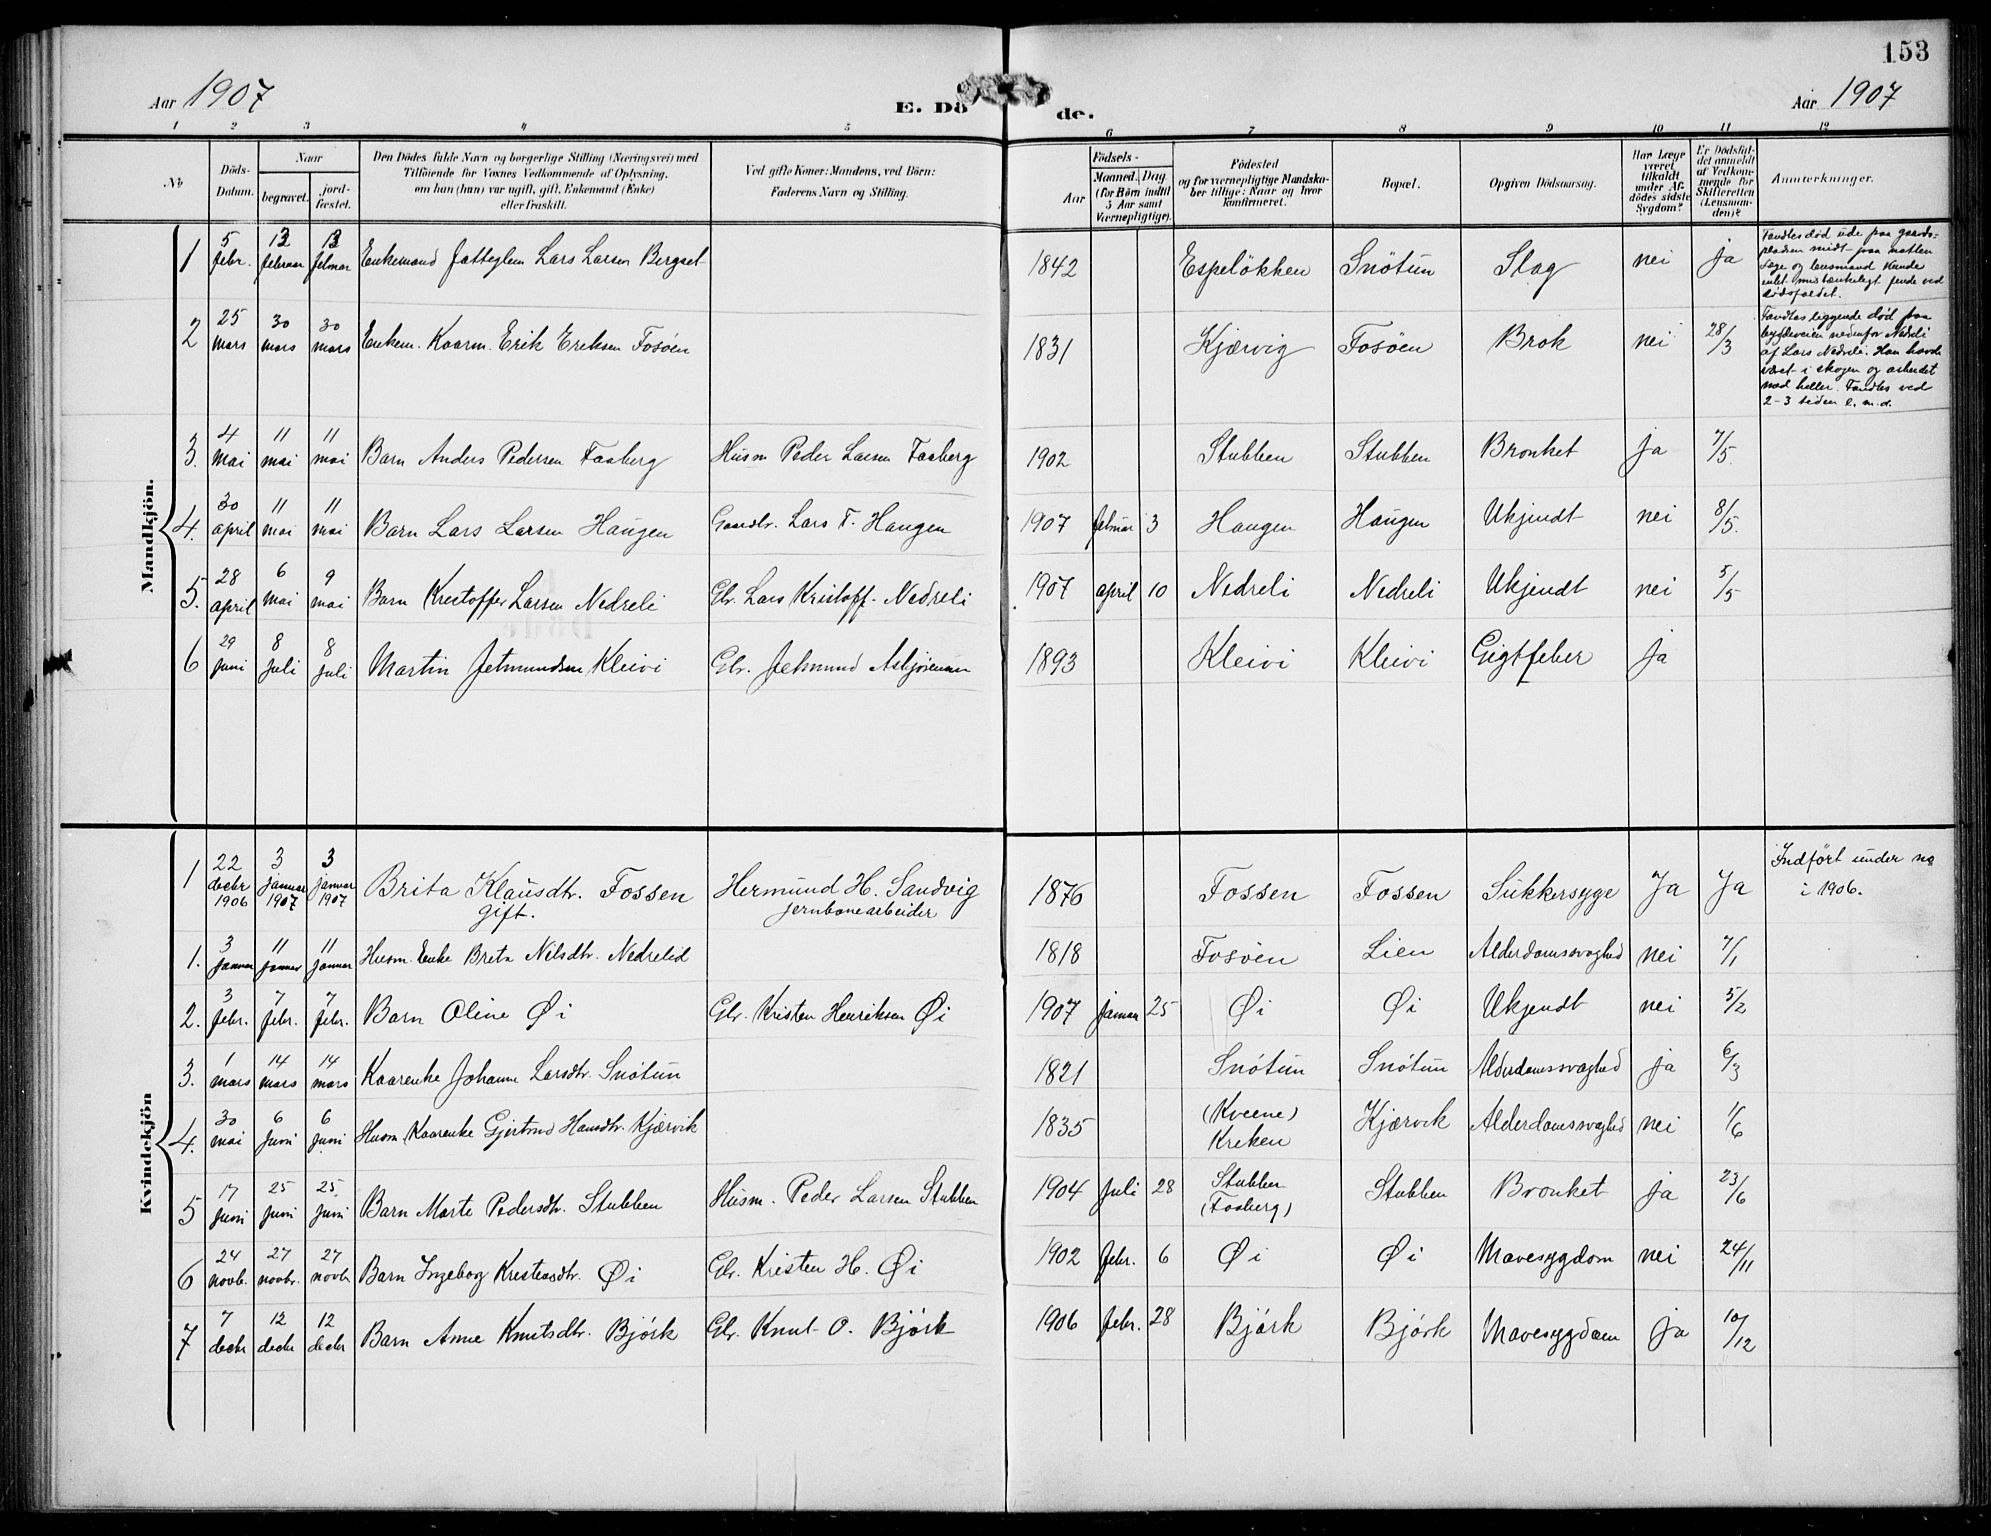 153
Aar 1907
E. Dö de.
Aar 1907
1 2 3 4 5 6 7 8 9 10 11 12
No
Döds-Datum.
Naar
begravet.
jordfæstet.
Den Dödes fulde Navn og borgerlige Stilling (Næringsvei) med
Tilföiende for Voxnes Vedkommende af Oplysning,
om han (hun) var ugift, gift, Enkemand (Enke)
eller fraskilt.
Ved gifte Koner: Mandens, ved Börn:
Faderens Navn og Stilling.
Födsels-
Aar
Maaned. Dag
(for Börn indtil
5 Aar samt
Værnepligtige).
Födested
og for værnepligtige Mandska-
ber tillige: Naar og hvor
konfirmeret.
Bopæl.
Opgiven Dödsaarsag.
Har Læge
været
tilkaldt
under Af-
dödes sidste
Sygdom?
Er Dödsfal-
det anmeldt
af Vedkom-
mende for
Skifteretten
(Lensman-
den)?
Anmærkninger.
Mandkjön.
1 5 febr. 13 februar 13 februar Enkemand Fatteglem Lars Larsen Bergset 1842 Espelökken Snötun Slag nei ja
Fandtes död ude paa gaards-
pladsen midt paa natten
Læge og lensmand kunde
intet mistænkeligt finde ved
dödsfaldet.
2 25 mars 30 mars 30 mars Enkem. Kaarm. Erik Eriksen Fosöen 1831 Kjærvig Fosöen Brok nei 28/3
Fandtes liggende död paa
bygdeveien nedenfor Nedreli
af Lars Nedreli. Han havde
været i skogen og arbeidet
med heller. Fandtes ved
2-3 tiden e. m.d.
3. 4 mai 11 mai 11 mai Barn Anders Pedersen Faaberg Husm Peder Larsen Faaberg 1902 Stubben Stubben Bronket ja 7/5.
4. 30 april 11 mai 11 mai Barn Lars Larsen Haugen Gaardbr. Lars T. Haugen 1907 februar 3 Haugen Haugen Ukjendt nei 8/5.
5. 28 april 6 mai 9 mai Barn Kristoffer Larsen Nedreli Gbr. Lars Kristoff. Nedreli 1907 april 10 Nedreli Nedreli Ukjendt nei 5/5
6 29 juni 8 juli 8 juli Martin Jetmundsen Kleivi Gbr. Jetmund Asbjörnsen 1893 Kleivi Kleivi Gigtfeber ja
Kvindekjön
1 22 decbr 1906 3 januar 1907 3 januar 1907 Brita Klausdtr. Fossen gift. Hermund H. Sandvig jernbanearbeider 1876 Fossen Fossen Sukkersyge Ja Ja Indfört under no i 1906.
1. 3 januar 11 januar 11 januar Husm. Enke Brita Nilsdtr. Nedrelid 1818 Fosöen Lien Alderdomssvaghed nei 7/1
2. 3 febr. 7 febr. 7 febr. Barn Oline Øi Gbr. Kristen Henriksen Øi 1907 januar 25 Øi Øi Ukjendt nei 5/2
3. 1 mars 14 mars 14 mars Kaarenke Johanne Larsdtr. Snötun 1821 Snötun Snötun Alderdomssvaghed ja 6/3
4. 30 mai 6 juni 6 juni Husm. Kaarenke Gjertrud Hansdtr. Kjærvik 1835 (Kveene) Kreken Kjærvik Alderdomssvaghed nei 1/6
5 17 juni 25 juni 25 juni Barn Marte Pedersdtr. Stubben Husm. Peder Larsen Stubben 1904 Juli 28 Stubben (Faaberg) Stubben Bronket ja 23/6
6 24 novb. 27 novbr. 27 novb. Barn Ingeborg Kristensdtr. Øi Gbr. Kristen H. Øi 1902 febr. 6 Øi Øi Mavesygdom nei 24/11
7 7 decbr 12 decbr 12 decbr Barn Anne Knutsdtr. Björk Gbr. Knut O. Björk 1906 febr. 28 Björk Björk Mavesygdom ja 10/12